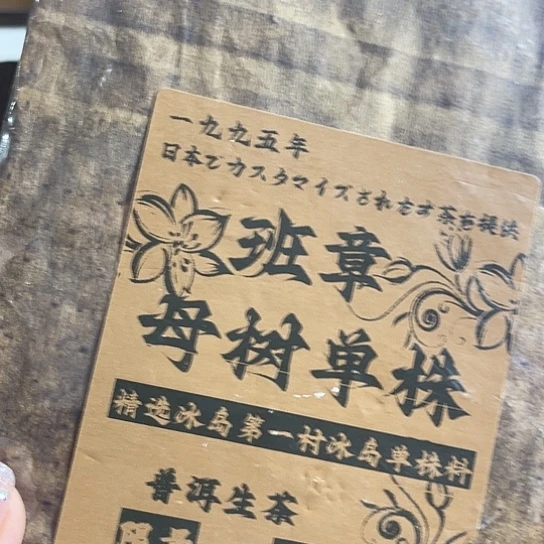 一九九五年
日本でカスタマイズされたす茶を提供
班章
母树单株
精选冰岛第一村冰岛单株料
普洱生茶